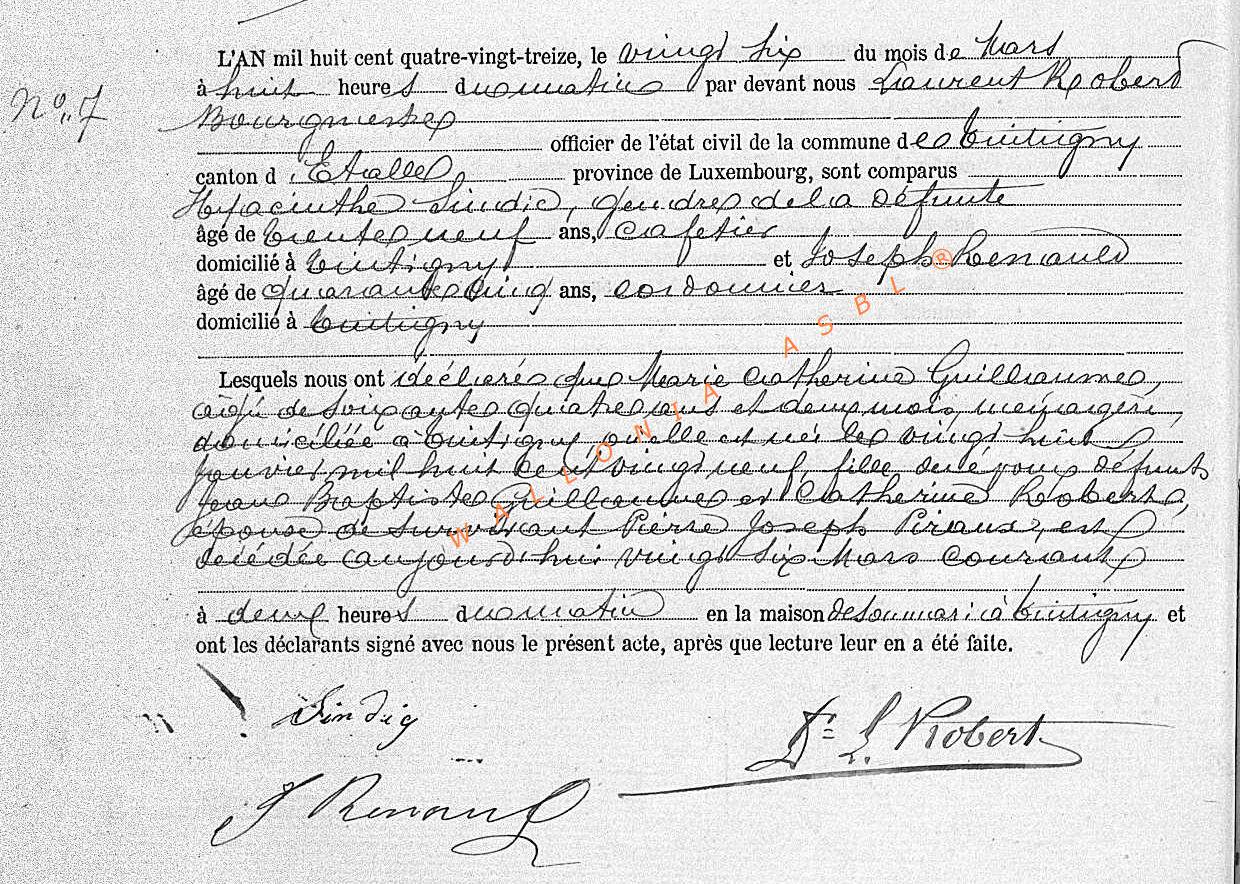 L'AN mil huit cent quatre-vingt-treize, le vingt six du mois de Mars
N° 7
à huit heures du matin par devant nous Laurent Robert
Bourgmestre
officier de l'état civil de la commune de Tintigny
canton d'Etalle, province de Luxembourg, sont comparus
Hyacinthe Sindic, gendre de la défunte
âgé de trente neuf ans, cafetier
domicilié à Tintigny et Joseph Renauld
âgé de quarante cinq ans, cordonnier
domicilié à Tintigny
Lesquels nous ont déclaré que Marie Catherine Guillaume,
âgé de soixante quatre ans et deux mois, ménagère
domiciliée à Tintigny, qu'elle est née le vingt huit
janvier mil huit cent vingt neuf, fille de époux défunts
Jean Baptiste Guillaume et Catherine Robert,
épouse de survivant Pierre Joseph Piraux, est
décédée aujourd'hui vingt six Mars courant
à deux heures du matin en la maison de son mari à Tintigny et
ont les déclarants signé avec nous le présent acte, après que lecture leur en a été faite.
Sindig
Dr L. Robert
J Renaul
WALLONIA ASBL ®